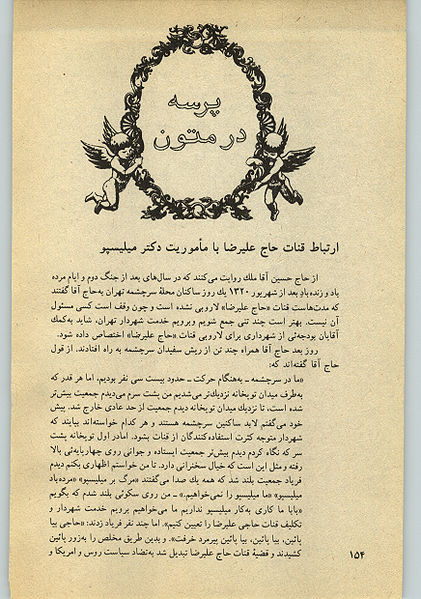 پرسه
در متون
ارتباط قنات حاج علیرضا با مأموریت دکتر میلیسپو
از حاج حسین آقا ملك روایت می‌کنند که در سال‌های بعد از جنگ دوم و ایام مرده
باد و زنده‌باد بعد از شهریور ۱۳۲۰ یك روز ساکنان محلهٔ سرچشمه تهران به‌حاج آقا گفتند
که مدت‌هاست قنات «حاج علیرضا» لاروبی نشده است و چون وقف است کسی مسئول
آن نیست. بهتر است چند تنی جمع شویم وبرویم خدمت شهردار تهران، شاید به‌کمك
آقایان بودجه‌ئی از شهرداری برای لاروبی قنات «حاج علیرضا» اختصاص داده شود.
روز بعد حاج آقا همراه چند تن از ریش سفیدان سرچشمه به راه افتادند. از قول
حاج آقا گفته‌اند که:
«ما در سرچشمه ـ به‌هنگام حرکت ـ حدود بیست سی نفر بودیم، اما هر قدر که
به‌طرف میدان توپخانه نزدیك‌تر می‌شدیم من پشت سرم می‌دیدم جمعیت بیش‌تر
شده است، تا نزدیك میدان توپخانه دیدم جمعیت از حد عادی خارج شد. پیش
خود می‌گفتم لابد ساکنین سرچشمه هستند و هر کدام خواسته‌اند بیایند که
شهردار متوجه کثرت استفاده‌کنندگان از قنات بشود. امادر اول توپخانه پشت
سر که نگاه کردم دیدم بیش‌تر جمعیت ایستاده و جوانی روی چهارپایه‌ئی بالا
رفته و مثل این است که خیال سخنرانی دارد. تا من خواستم اظهاری بکنم دیدم
فریاد جمعیت بلند شد که همه یك صدا می‌گفتند «مرگ بر میلیسپو» «مرده‌باد
میلیسپو» «ما میلیسپو را نمی‌خواهیم.» ـ من روی سکوئی بلند شدم که بگویم
«بابا ما کاری به‌کار میلیسپو نداریم ما می‌خواهیم برویم خدمت شهردار و
تکلیف قنات حاجی علیرضا را تعیین کنیم». اما چند نفر فریاد زدند: «حاجی بیا
پائین، بیا پائین، بیا پائین پیرمرد خرفت». و بدین طریق مخلص را به‌زور پائین
کشیدند و قضیهٔ قنات حاج علیرضا تبدیل شد به‌تضاد سیاست روس و امریکا و
۱۵۴